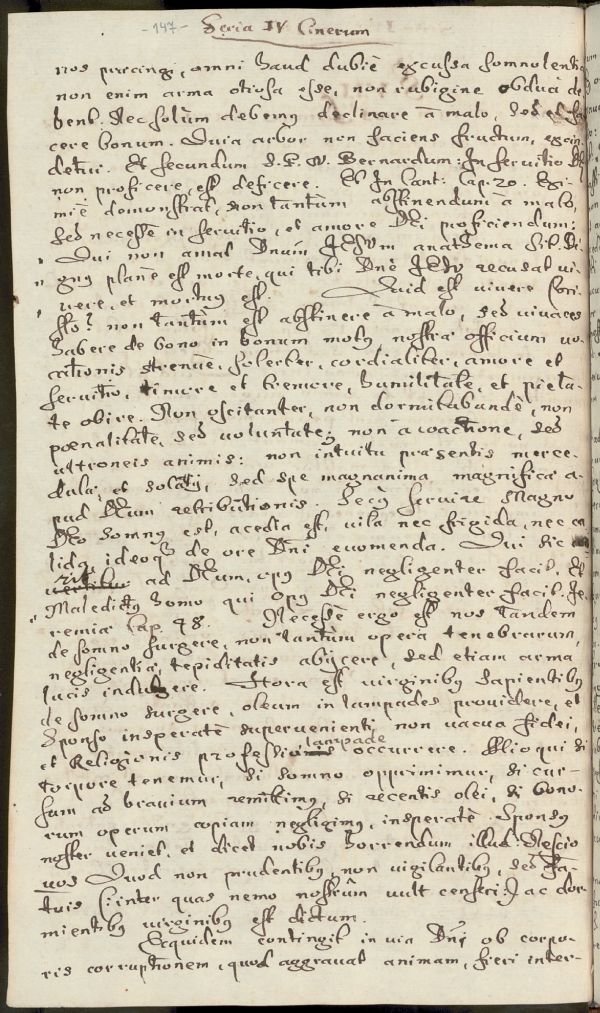 -147- Feria IV Cinerum
nos præcingi, omni haud dubiè excussa somnolentia
non enim arma otiosa esse, non rubigine obducta de
bent. Nec solùm debemus declinare à malo, sed et fa
cere bonum. Quia arbor non faciens fructum, excin
detur. Et secundum S. P. N. Bernardum: In servitio Dei
non proficere, est deficere. Et In Cant: Cap: 20. Exi-
miè demonstrat, non tantùm abstinendum à malo,
sed necesse in servitio, et amore Dei proficiendum:
" Qui non amat Dnum JESUm anathema sit. Di-
" gnus planè est morte, qui tibi Dne JESU recusat vi-
" vere, et mortuus est. Quid est vivere Chri-
sto? non tantùm est abstinere à malo, sed vivaces
habere de bono in bonum motus, nostræ officium vo
cationis strenuè, solerter, cordialiter, amore et
servitio, timore et tremore, humilitate, et pieta-
te obire. Non oscitanter, non dormitabundè, non
poenalitate, sed voluntate; non à coactione, sed
ultroneis animis: non intuitu præsentis merce-
dulæ, et solatij, sed spe magnanima, magnifica a-
pud Deum retributionis. Secus servire Magno
Deo somnus est, acedia est, vita nec frigida, nec ca
lida, ideoque de ore Dni evomenda. Qui sic
rit ad Deum, opus Dei negligenter facit. Et
" Maledictus homo qui Opus Dei negligenter facit. Je-
remiæ Cap. 48. Necesse ergo est nos tandem
de somno surgere, non tantùm opera tenebrarum,
negligentiæ, tepiditatis abijcere, sed etiam arma
lucis induere. Hora est virginibus sapientibus
de somno surgere, oleum in lampades providere, et
Sponso insperatè supervenienti, non vacua fidei,
et Religionis professionis lampade occurrere. Alioqui si
torpore tenemur, si somno opprimimur, si cur-
sum ad bravium remittimus, si recentis olei, si bono-
rum operum copiam negligimus, insperatè Sponsus
noster veniet, et dicet nobis horrendum illud: Nescio
vos Quod non prudentibus, non vigilantibus, sed Fa-
tuis (: inter quas nemo nostrûm vult censeri :) ac dor
mientibus virginibus est dictum.
Ecquidem contingit in via Dni ob corpo-
ris corruptionem, quod aggravat animam, fieri inter-